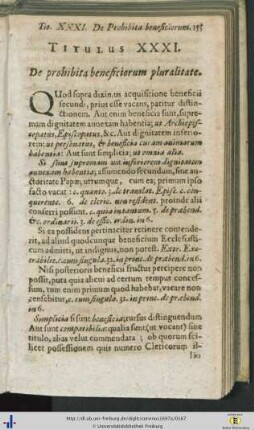 Tit. XXXI. De Prohibita beneficiorum. 155
TITULUS XXXI.
De prohibita beneficiorum pluralitate.
QUod supra diximus acquisitione beneficii
secundi, prius esse vacans, patitur distin-
ctionem. Aut enim beneficia sunt, supre-
mam dignitatem annexam habentia; ut Archiepis-
copatus, Episcopatus, &c. Aut dignitatem inferio-
rem: ut personatus, & beneficia curam animarum
habentia: Aut sunt simplicia; ut omnia alia.
Si sint supremam aut inferiorem dignitatem
annexam habentia; assumendo secundum, sine au-
ctoritate Papæ, utrumque, cum ea; primum ipso
facto vacat: c. quanto. 3. de translat. Episc. c. con-
querente. 6. de cleric. non resident. proinde alii
conferri possunt. c. quia in tantum. 5. de præbend.
&c. ordinarii. 3. de offic. ordin. in 6.
Si ea possident pertinaciter retinere contende-
rit, ad aliud quodcunque beneficium Ecclesiasti-
cum admitti, ut indignus, non potest. Exe. Exe-
crabilis, c. cum singula. 32. in princ. de præbend. in 6.
Nisi posterioris beneficii fructus percipere non
possit, puta quia alteri ad certum tempus conces-
sum, tum enim primum quod habebat, vacare non
censebitur, c. cum singula. 32. in princ. de præbend.
in 6.
Simplicia si sint beneficia, rursus distinguendum
Aut sunt compatibilia: qualia sunt (ut vocant) sine
titulo, alias velut commendata; ob quorum sci-
licet possessionem quis numero Clericorum il-
lius
http://dl.ub.uni-freiburg.de/diglit/corvinus1697a/0167
© Universitätsbibliothek Freiburg